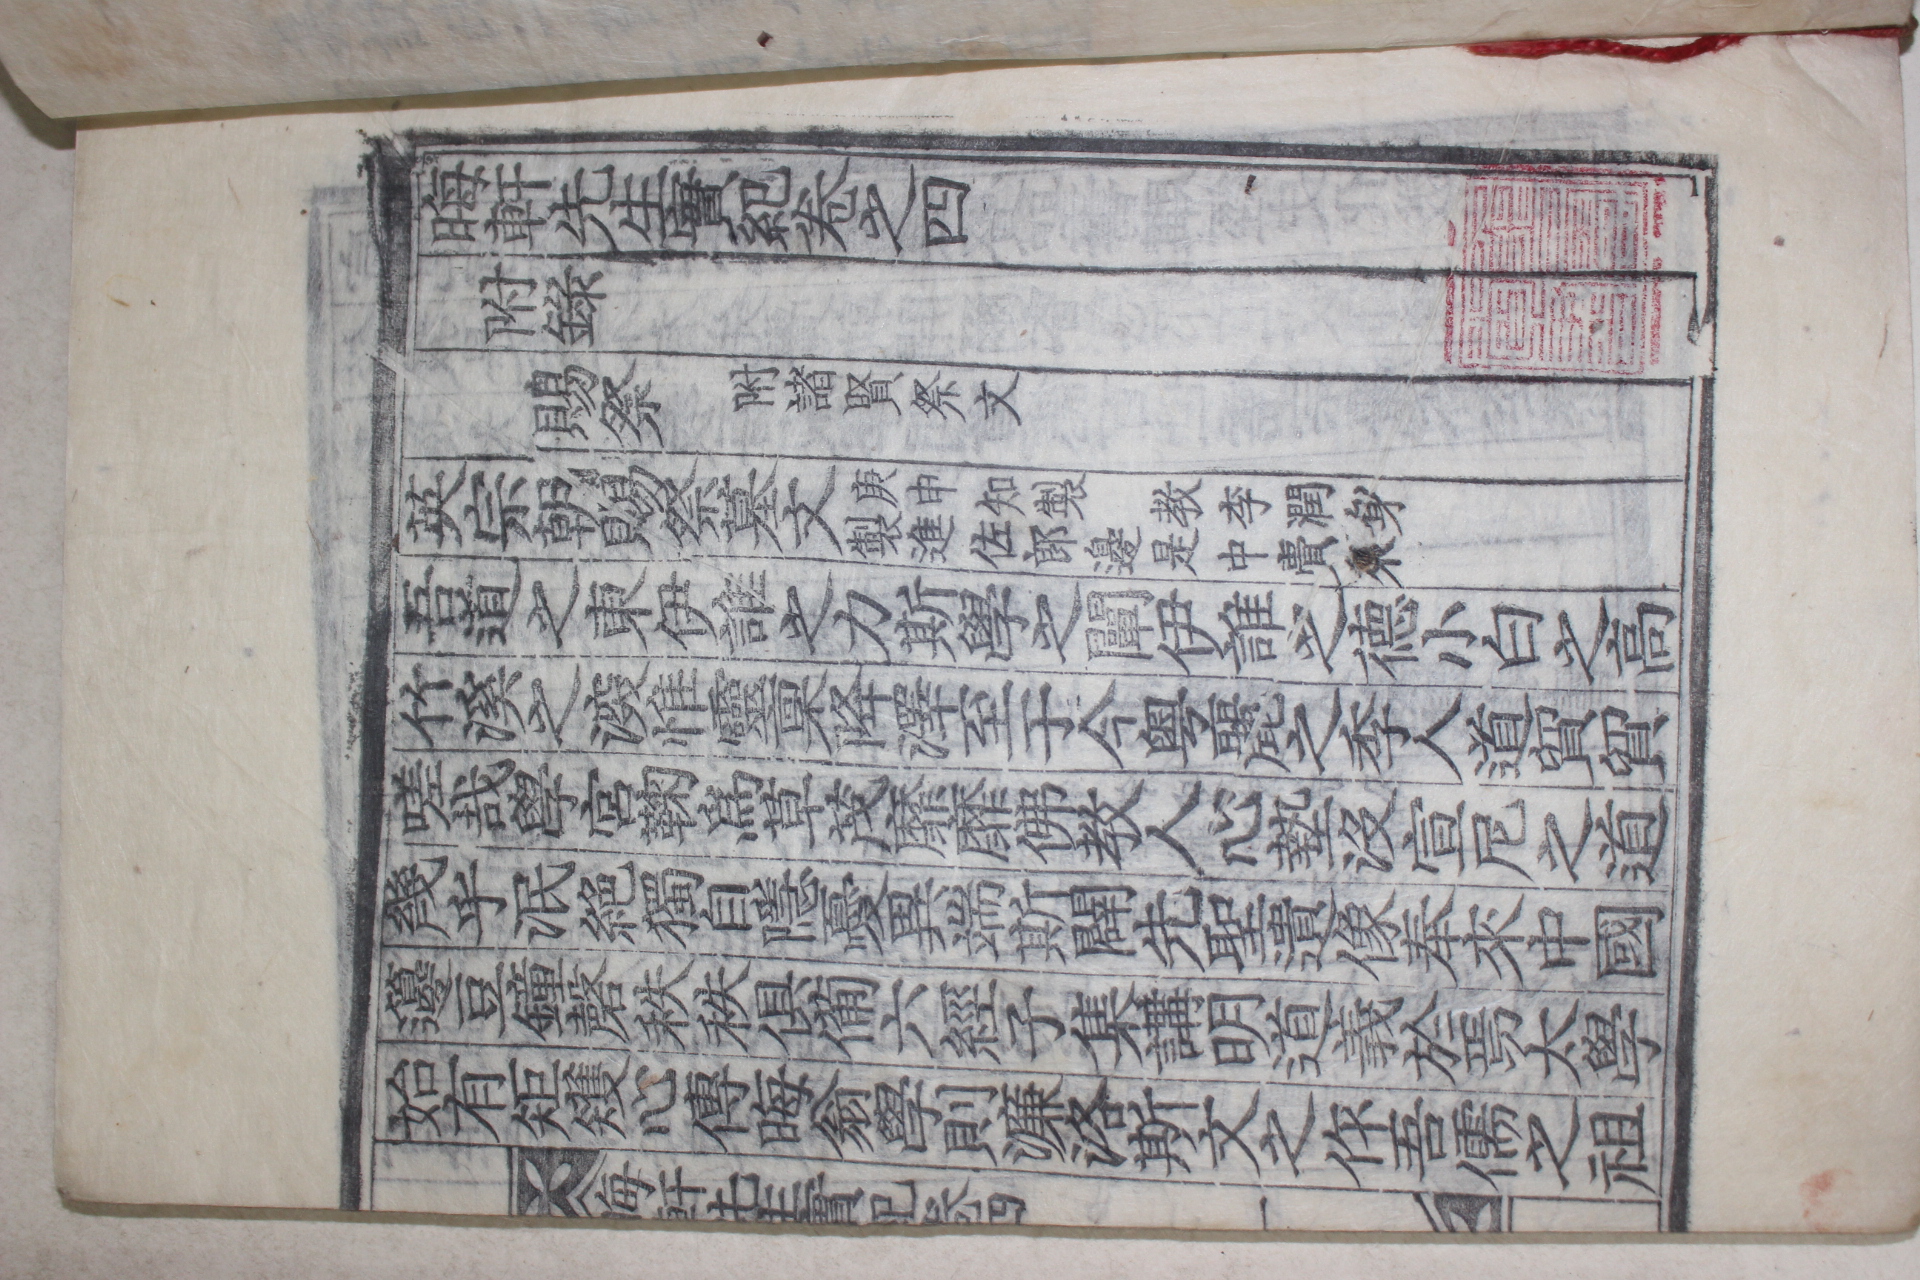 晦軒先生實紀卷之四
附錄
賜祭 附諸賢祭文
英宗朝賜祭墓文 庚申知製教李潤身
製進佐郎邊是中賷來
吾道之東伊誰之力斯學之闡伊誰之德小白之高
竹溪之深惟靈稟降澤至于今粤麗之季人道貿貿
嗟哉學宮鞠爲草茂靡靡佛教人心墊沒宣尼之道
幾乎泯絕獨自隱憂異端斯闢先聖遺像奉來中國
籩豆鐘磬秩秩俱備六經子集講明道義於焉太學
始有矩矱心傳晦翁學則濂洛斯文之作吾儒之祖
晦軒先生實紀卷四
一